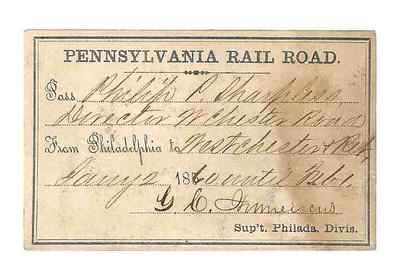 PENNSYLVANIA RAIL ROAD.
Pass Philip P. Sharpless
Director W Chester Road
From Philadelphia to West Chester & Ret.
186 until
Sup't. Philada. Divis.